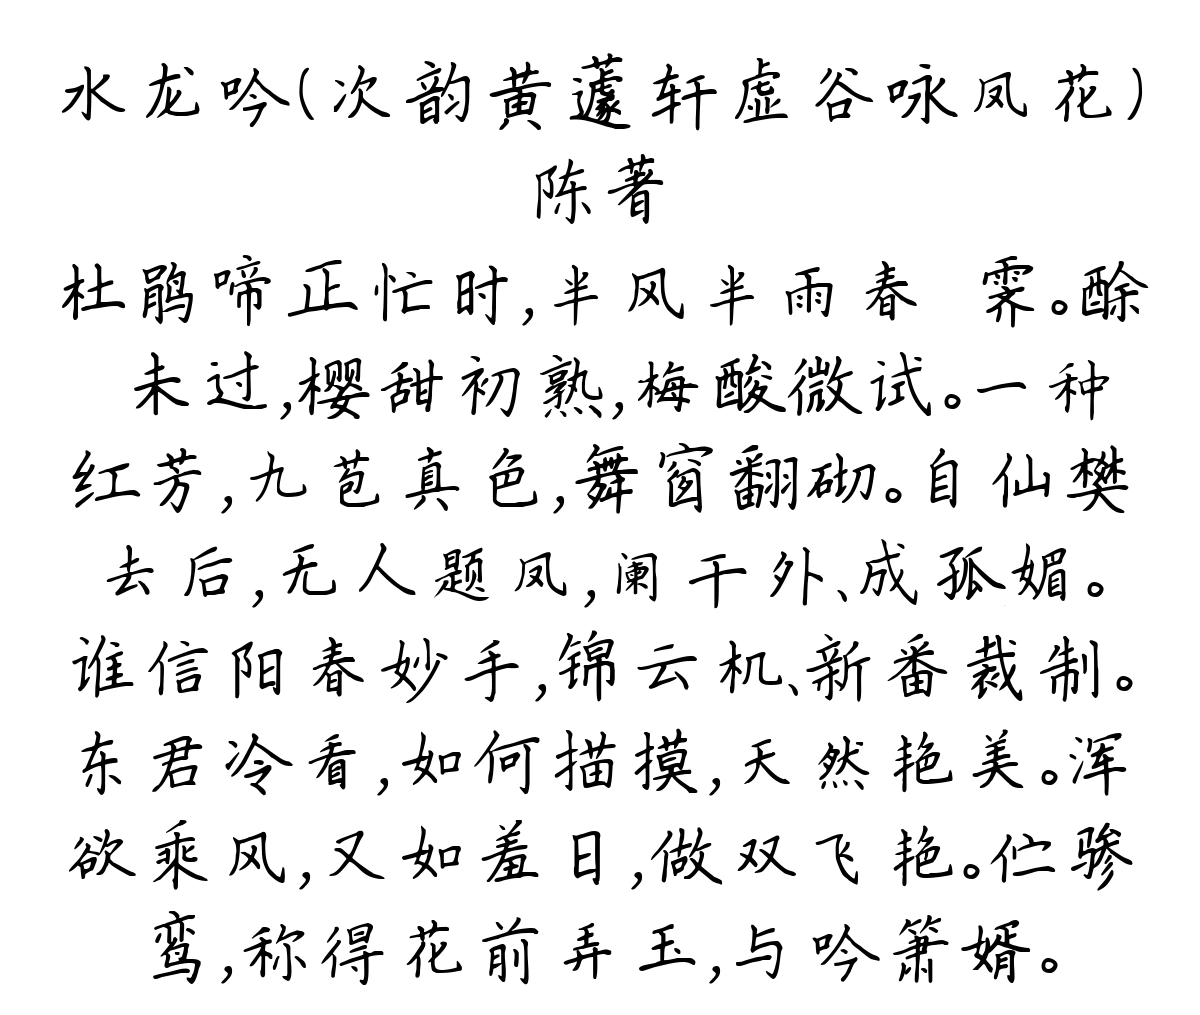 水龙吟(次韵黄蘧轩虚谷咏凤花)
陈著
杜鹃啼正忙时,半风半雨春 霁。酴
未过,樱甜初熟,梅酸微试。一种
红芳,九苞真色,舞窗翻砌。自仙樊
去后,无人题凤,阑干外、成孤媚。
谁信阳春妙手,锦云机、新番裁制。
东君冷看,如何描摸,天然艳美。浑
欲乘风,又如羞日,做双飞艳。伫骖
鸾,称得花前弄玉,与吟箫婿。